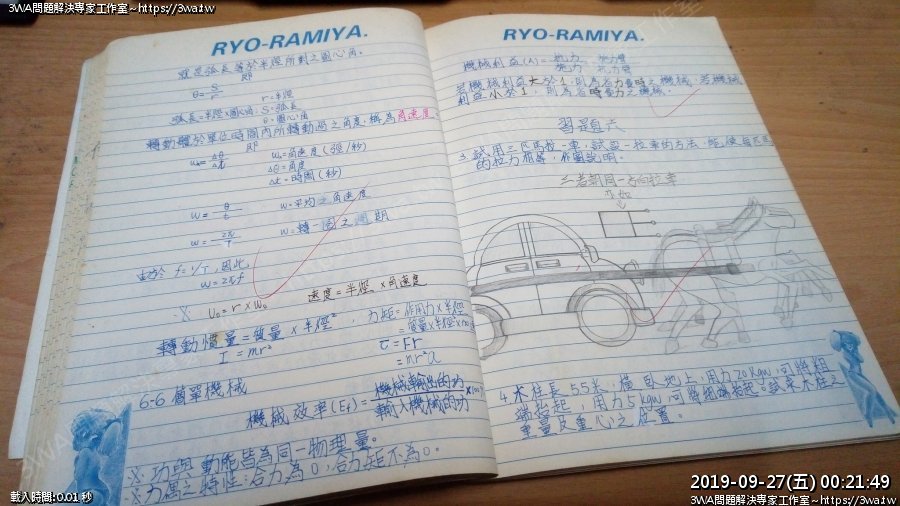 3WA問題解決專家工作室~https://3wa.tw
RYO-RAMIYA.
就是弧長等於半徑所對之圓心角。
θ = S/r
r=半徑
弧長=半徑×圓心角 S=弧長
θ=圓心角
轉動體於單位時間內所轉動過之角度,稱為角速度。
ω₀ = Δθ/Δt
ω₀=角速度(弧/秒)
Δθ=角度
Δt=時間(秒)
ω = θ/t
ω=平均之角速度
ω = 2π/T
ω=轉一圈之週期
由於 f=1/T,因此,
ω=2πf
※ υ₀=r×ω₀
速度=半徑×角速度
轉動慣量=質量×半徑²,力矩=作用力×半徑
I=mr²
τ=Fr
=mr²α
6-6 簡單機械
機械效率(Ef)=機械輸出的功/輸入機械的功
※功與動能皆為同一物理量。
※力偶之特性:合力為0,合力矩不為0。
RYO-RAMIYA.
機械利益(A)=抗力/施力
若機械利益大於1,則為省力費時之機械,若機械
利益小於1,則為省時費力之機械。
習題六
3.試用三匹馬拉一車,試設一拉車的方法,能使每匹馬
的拉力相等,作圖說明。
三者朝同一方向拉車
4.木柱長5.5米,橫臥地上,用力20kgw,可將粗
端抬起,用力5kgw,可將細端抬起。試求木柱之
重量及重心之位置。
載入時間:0.01 秒
2019-09-27(五) 00:21:49
3WA問題解決專家工作室~https://3wa.tw